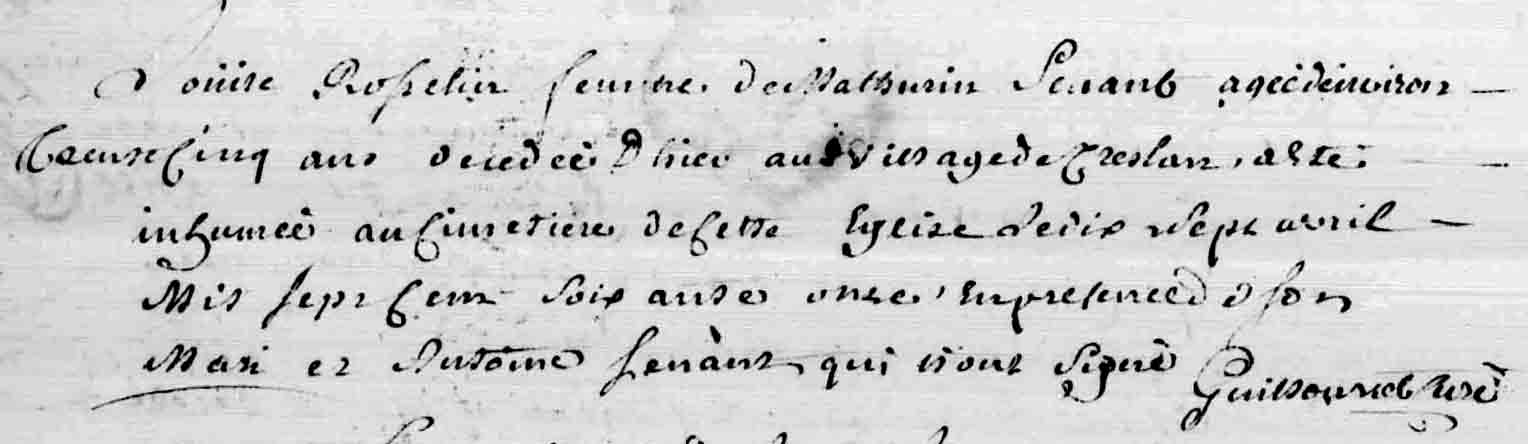 Loüise Rosselin femme de Mathurin Senant agée denviron
trente Cinq ans decedée Dhier au village de Creslan, a Ete
inhumée au Cimetiere de Cette Eglise le dix sept avril
Mil sept Cent Soixante onze, En presence de son
Mari et Antoine Senant qui n'ont Signé Curé